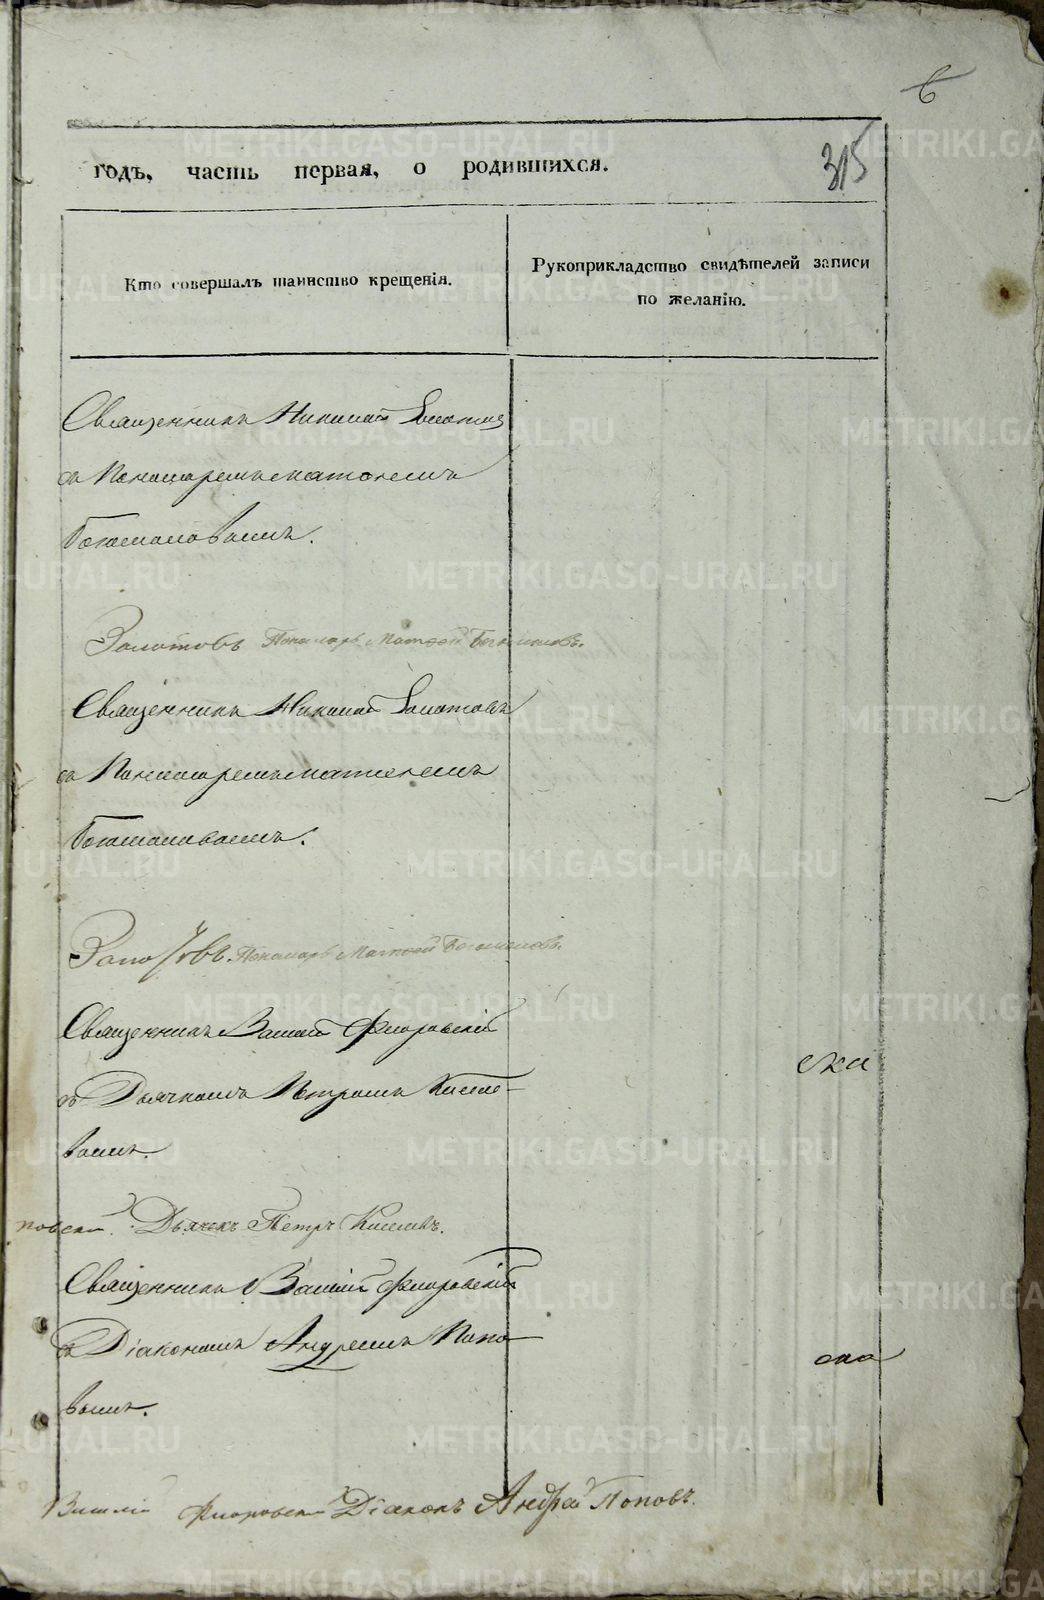 6
315
годъ, часть первая, о родившихся.
Кто совершалъ таинство крещенія.
Рукоприкладство свидѣтелей записи
по желанію.
Священникъ Николай Золотов
съ Пономаремъ Матѳеемъ
Богомоловымъ.
Золотовъ Пономарь Матѳей Богомоловъ.
Священникъ Николай Золотовъ
съ Пономаремъ Матѳеемъ
Богомоловымъ.
Золотовъ. Пономарь Матѳей Богомоловъ.
Священникъ Василий Флоровскій
съ Дьячкомъ Петромъ Киселе-
вымъ.
ровскій. Дьячекъ Петръ Киселевъ.
Священникъ Василій Флоровскій
съ Діакономъ Андреемъ Попо-
вымъ.
Василій Флоровскій Діаконъ Андрей Поповъ.
METRIKI.GASO-URAL.RU